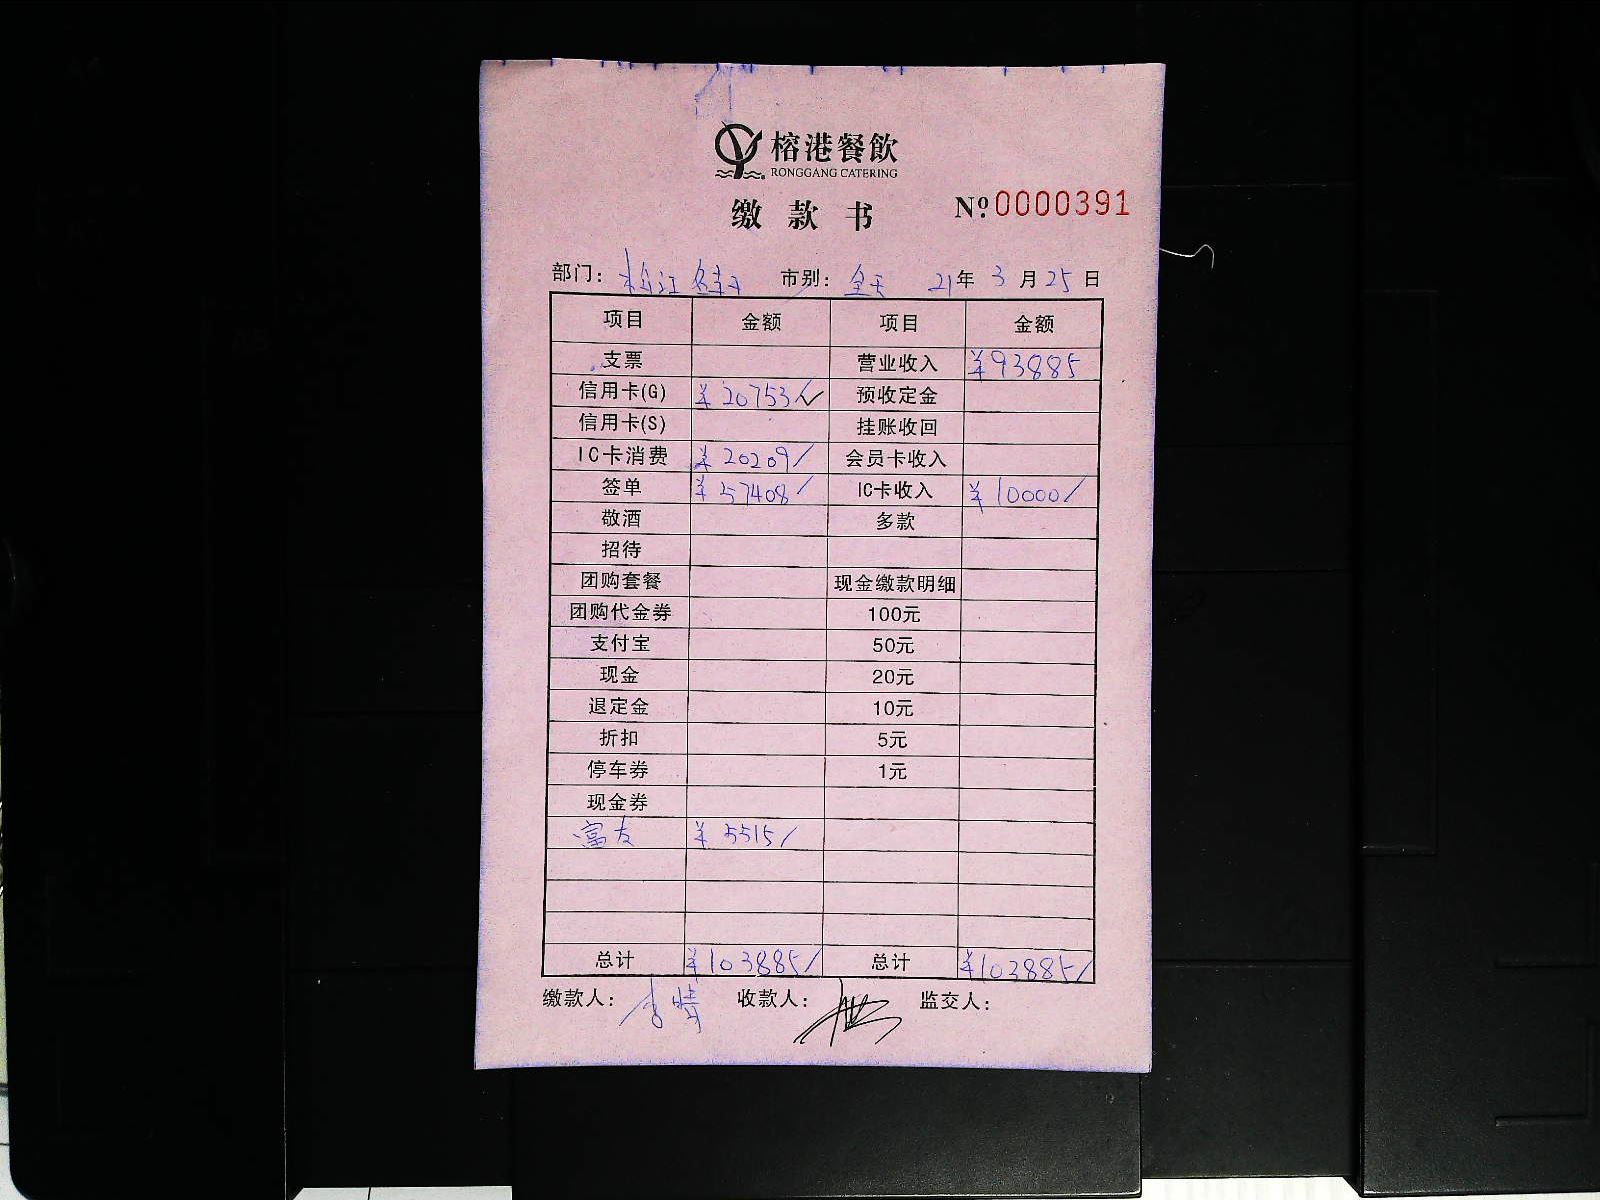 榕港餐飲
RONGGANG CATERING
缴款书 № 0000391
部门: 松江 市别: 全天 21年 3月 25日
项目 金额 项目 金额
支票 营业收入 ¥93885
信用卡(G) ¥20753 预收定金
信用卡(S) 挂账收回
IC卡消费 ¥20209 会员卡收入
签单 ¥57408 IC卡收入 ¥10000
敬酒 多款
招待
团购套餐 现金缴款明细
团购代金券 100元
支付宝 50元
现金 20元
退定金 10元
折扣 5元
停车券 1元
现金券
富友 ¥5515
总计 ¥103885 总计 ¥103885
缴款人: 收款人: 监交人: